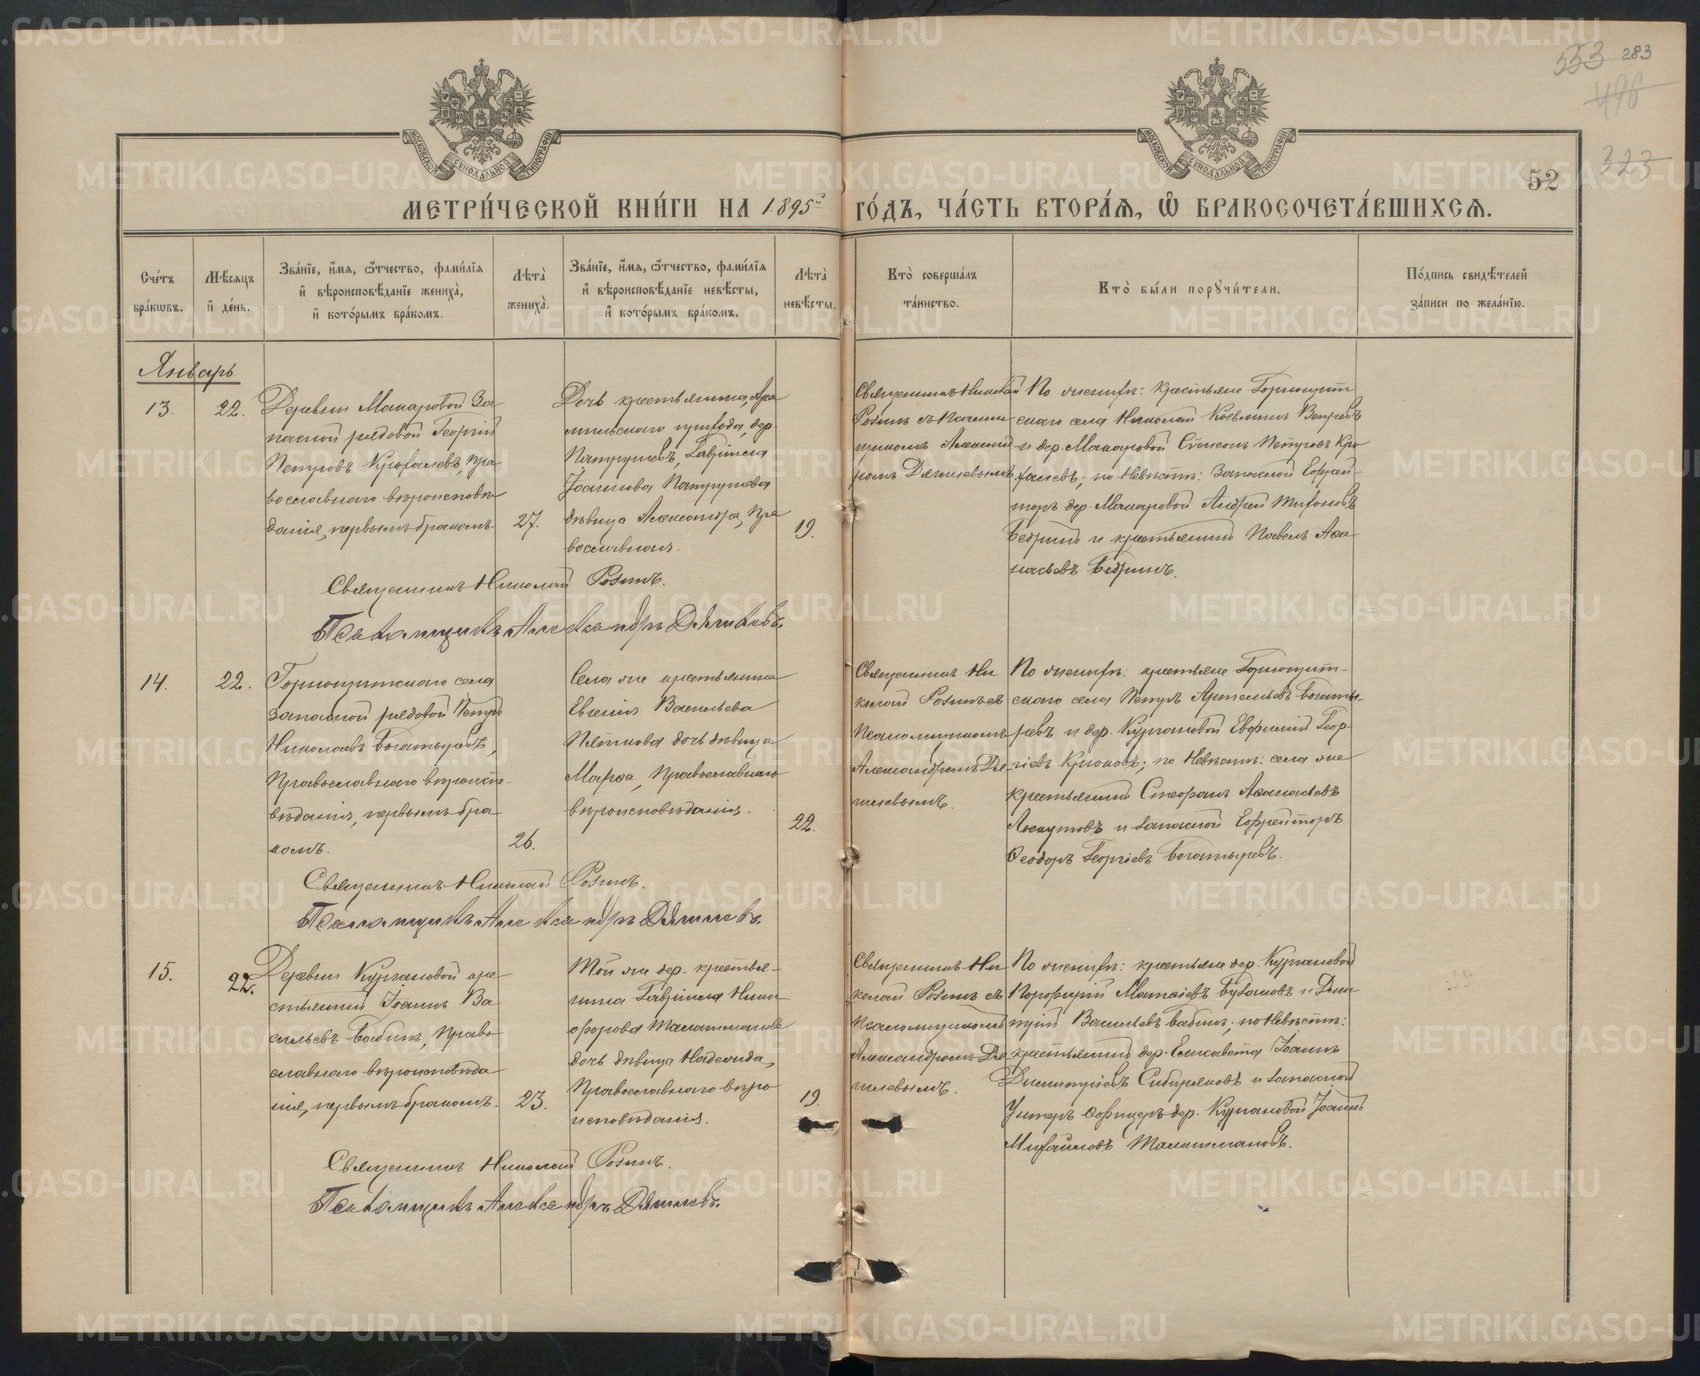 553 283
498
323
52
МЕТРИ́ЧЕСКОЙ КНИ́ГИ НА 1895й ГО́ДЪ, ЧА́СТЬ ВТОРА́Я, Ѡ БРАКОСОЧЕТА́ВШИХСЯ.
Сче́тъ бра́кѡвъ.
Мѣ́сѧцъ и҆ де́нь.
Зва́нїе, и҆́мя, ѻ҆́тчество, фамилі́я и҆ вѣроисповѣ́данїе жениха̀, и҆ кото́рымъ бра́комъ.
Лѣта̀ жениха̀.
Зва́нїе, и҆́мя, ѻ҆́тчество, фамилі́я и҆ вѣроисповѣ́данїе невѣ́сты, и҆ кото́рымъ бра́комъ.
Лѣта̀ невѣ́сты.
Кто̀ соверша́лъ та́инство.
Кто̀ бы́ли порꙋчи́тели.
По́дпись свидѣ́телей за́писи по жела́нїю.
Январь
13.
22.
Деревни Макаровой За-
пасной рядовой Георгій
Петровъ Крохалевъ, пра-
вославнаго вѣроисповѣ-
данія, первымъ бракомъ.
27.
Дочь крестьянина, Ара-
мильскаго прихода, дер.
Патрушевъ, Гавріила
Іоаннова Патрушева
дѣвица Александра, Пра-
вославная.
19.
Священникъ Николай
Розинъ съ Псалом-
щикомъ Александ-
ромъ Дягилевымъ
По женихѣ: крестьяне Горнощит-
скаго села Николай Косьминъ Вепревъ
и дер. Макаровой Стефанъ Петровъ Кро-
халевъ; по Невѣстѣ: Запасной Ефрей-
торъ дер. Макаровой Андрей Тифоновъ
Бедринъ и крестьянинъ Павелъ Аѳа-
насьевъ Бедринъ.
Священникъ Николай Розинъ.
Псаломщикъ Александръ Дягилевъ.
14.
22.
Горнощитскаго села
запасной рядовой Петръ
Николаевъ Богатыревъ,
Православнаго вѣроиспо-
вѣданія, первымъ бра-
комъ.
26.
Села же крестьянина
Евгенія Васильева
Пьянкова дочь дѣвица
Марѳа, Православнаго
вѣроисповѣданія.
22.
Священникъ Ни-
колай Розинъ съ
Псаломщикомъ
Александромъ Дя-
гилевымъ.
По женихѣ: крестьяне Горнощит-
скаго села Петръ Артемьевъ Богаты-
ревъ и дер. Кургановой Евфимій Геор-
гіевъ Крюковъ; по Невѣстѣ: села же
крестьянинъ Стефанъ Аѳанасьевъ
Лоскутовъ и запасной Ефрейторъ
Ѳеодоръ Георгіевъ Богатыревъ.
Священникъ Николай Розинъ.
Псаломщикъ Александръ Дягилевъ.
15.
22.
Деревни Кургановой кре-
стьянинъ Іоаннъ Ва-
сильевъ Бабинъ, Право-
славнаго вѣроисповѣда-
нія, первымъ бракомъ.
23.
Той же дер. крестья-
нина Гавріила Ники-
форова Талашманова
дочь дѣвица Надежда,
Православнаго вѣро-
исповѣданія.
19
Священникъ Ни-
колай Розинъ съ
Псаломщикомъ
Александромъ Дя-
гилевымъ.
По женихѣ: крестьяне дер. Кургановой
Порфирій Матвѣевъ Бузановъ и Дими-
трій Васильевъ Бабинъ; по Невѣстѣ:
крестьянинъ дер. Елисавета Іоаннъ
Димитріевъ Сибиряковъ и запасной
Унтеръ Офицеръ дер. Кургановой Іоаннъ
Михайловъ Талашмановъ.
Священникъ Николай Розинъ.
Псаломщикъ Александръ Дягилевъ.